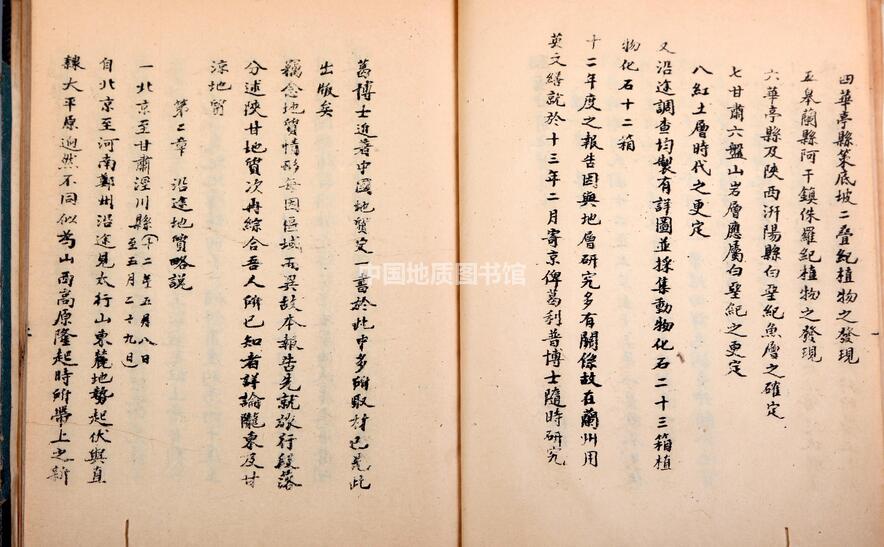 四華亭縣策底坡二疊紀植物之發現
五皋蘭縣阿干鎮侏羅紀植物之發現
六華亭縣及陝西汧陽縣白堊紀魚層之確定
七甘肅六盤山岩層應屬白堊紀之更定
八紅土層時代之更定
又沿途調查均製有詳圖並採集動物化石二十三箱植
物化石十二箱
十二年度之報告因與地層研究多有關係故在蘭州用
英文繕就於十三年二月寄京俾葛利普博士隨時研究
葛博士近著中國地質史一書於此中多所取材已見此
出版矣
竊念地質情形每因區域而異故本報告先就旅行段落
分述陝甘地質次再綜合吾人所已知者詳論隴東及甘
涼地質
第二章 沿途地質略說
一北京至甘肅涇川縣(十二年五月八日至五月二十九日)
自北京至河南鄭州沿途見太行山東麓地勢起伏與直
隸大平原迥然不同似為山西高原隆起時所帶上之新
中国地质图书馆